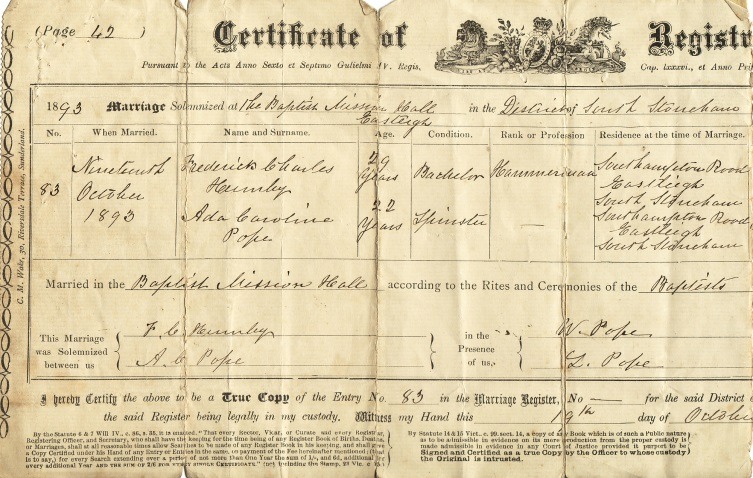 (Page 42)
Certificate of Registr
Pursuant to the Acts Anno Sexto et Septimo Gulielmi IV. Regis, Cap. lxxxvi., et Anno Pri
1893 Marriage Solemnized at The Baptist Mission Hall Eastleigh in the District of South Stoneham
No. When Married. Name and Surname. Age. Condition. Rank or Profession Residence at the time of Marriage.
83 Nineteenth October 1893
Frederick Charles Humby 29 Years Bachelor Hammerman Southampton Road Eastleigh South Stoneham
Ada Caroline Pope 22 Years Spinster — Southampton Road Eastleigh South Stoneham
Married in the Baptist Mission Hall according to the Rites and Ceremonies of the Baptists
This Marriage was Solemnized between us
F. C. Humby
A. C. Pope
in the Presence of us,
W. Pope
L. Pope
I hereby Certify the above to be a True Copy of the Entry No. 83 in the Marriage Register, No — for the said District
the said Register being legally in my custody. Witness my Hand this 19th day of Octobe
By the Statute 6 & 7 Will IV., c. 86, s. 35, it is enacted, "That every Rector, Vicar, or Curate and every Registrar
Registering Officer, and Secretary, who shall have the keeping for the time being of any Register Book of Births, Deaths,
or Marriages, shall at all reasonable times allow Searches to be made of any Register Book in his keeping, and shall
a Copy Certified under his Hand of any Entry or Entries in the same, on payment of the Fee hereinafter mentioned;
is to say,) for every Search extending over a period of not more than One Year the sum of 1/-, and 6d. additional
every additional Year AND THE SUM OF 2/6 FOR EVERY SINGLE CERTIFICATE." (not including the Stamp, 23 Vic c
By Statute 14 & 15 Vict. c. 99. sect. 14, a copy of any Book which is of such a Public nature
as to be admissible in evidence on its mere production from the proper custody is
made admissible in evidence in any Court of Justice provided it purport to be
Signed and Certified as a true Copy by the Officer to whose custody
the Original is intrusted.
C. M. Wake, 30, Riversdale Terrace, Sunderland.